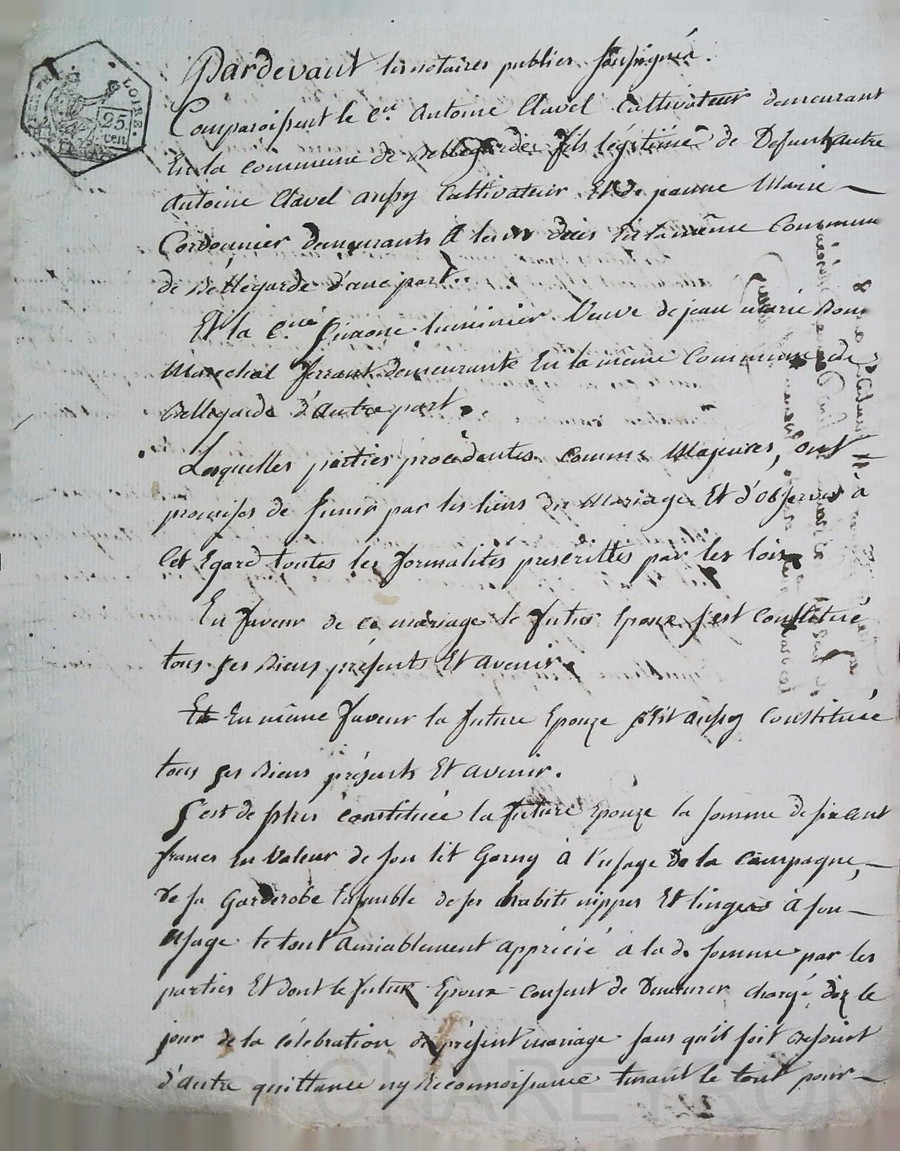 LOIRE.
25
cen.
Pardevant les notaires publics soussignés.
Comparoissent le C.en Antoine Clavel Cultivateur demeurant
En la commune de Bellegarde fils légitime de Defunt autre
Antoine Clavel aussy Cultivateur Et de Marie
Cordonnier demeurants En la même Commune
de Bellegarde d'une part.
Et la C.enne Simone Veuve de jean marie
Marechal ferrant demeurante En la même Commune de
Bellegarde d'Autre part.
Lesquelles parties procédantes comme Majeures, ont
promises de s'unir par les liens du Mariage Et d'observer a
cet Egard toutes les formalités prescrittes par les lois
En faveur de ce mariage le futur Epoux s'est constitué
tous ses Biens présents Et avenir.
En même faveur la future Epouze s'est aussy constituée
tous ses Biens présents Et avenir.
S'est de plus constituée la future Epouze la somme de six cent
francs En valeur de son lit Garny à l'usage de la campagne,
de sa Garderobe Ensemble de ses habits nippes Et linges à son
usage le tout Amiablement apprécié à la de somme par les
parties Et dont le futur Epoux consent de Demeurer chargé dez le
jour de la célébration du présent mariage sans qu'il soit besoin
d'autre quittance ny Reconnoissance tenant le tout pour
CHAREYRON